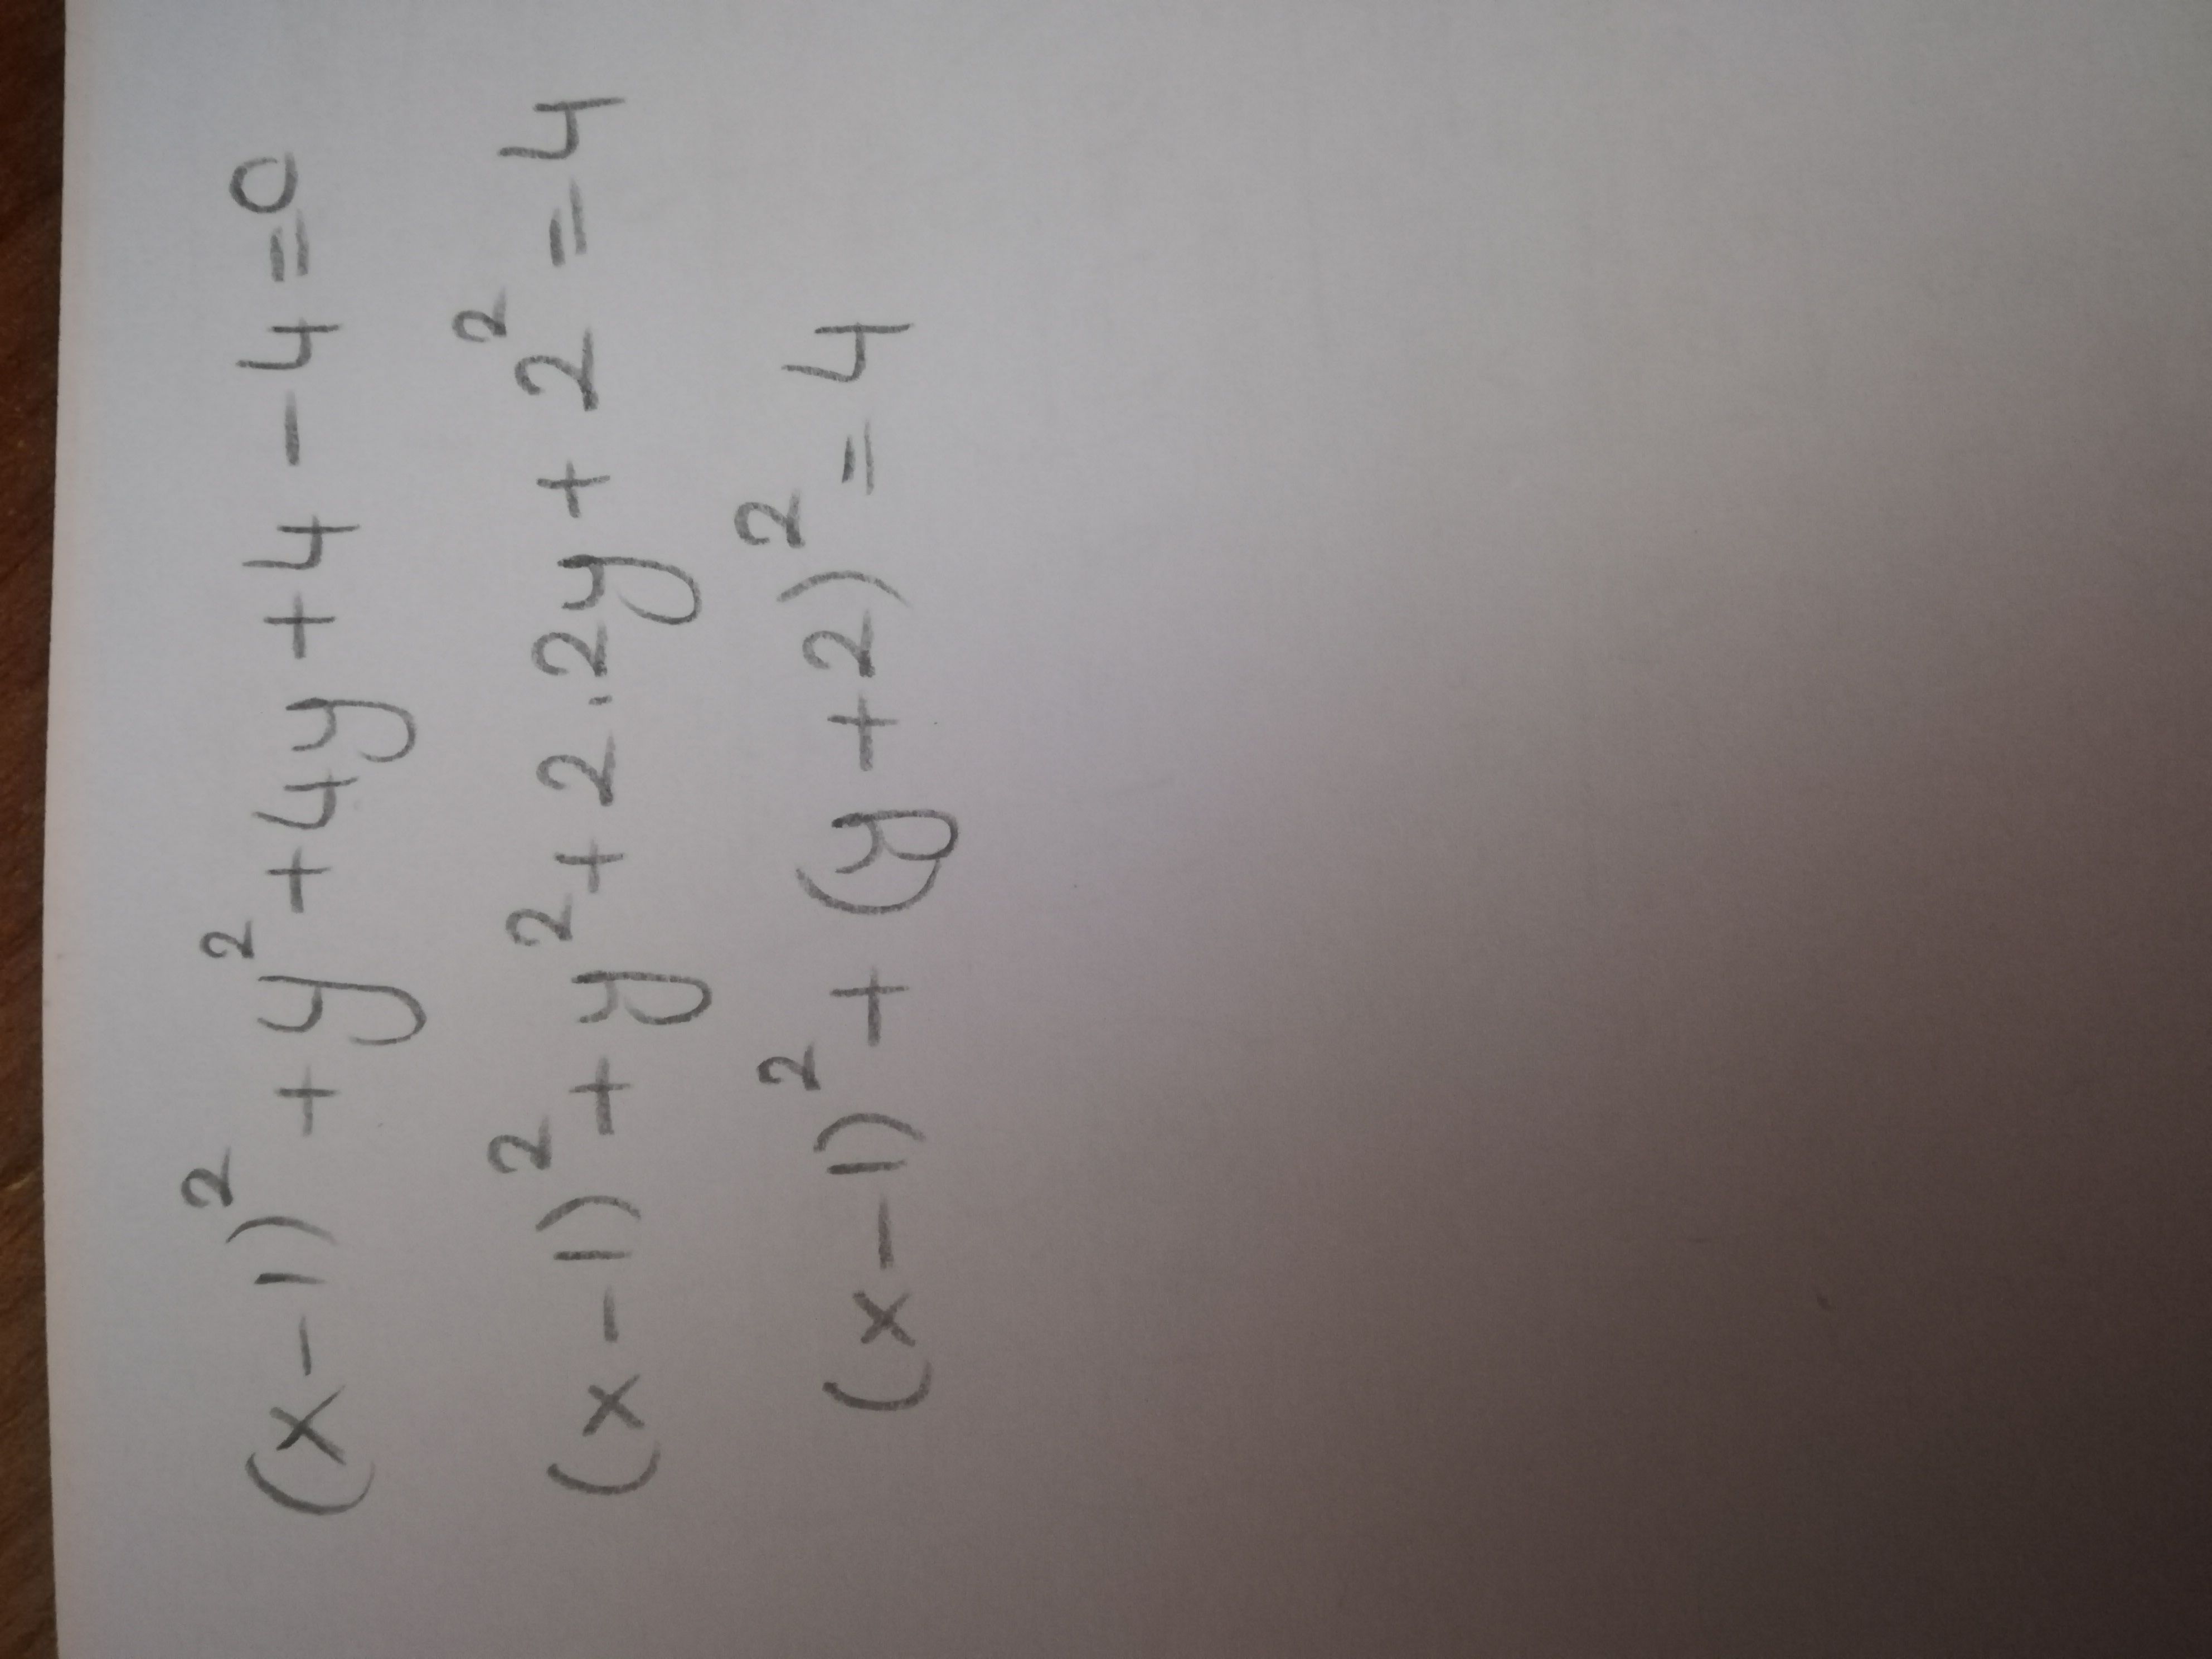 (x-1)² + y² + 4y + 4 - 4 = 0
(x-1)² + y² + 2.2y + 2² = 4
(x-1)² + (y+2)² = 4